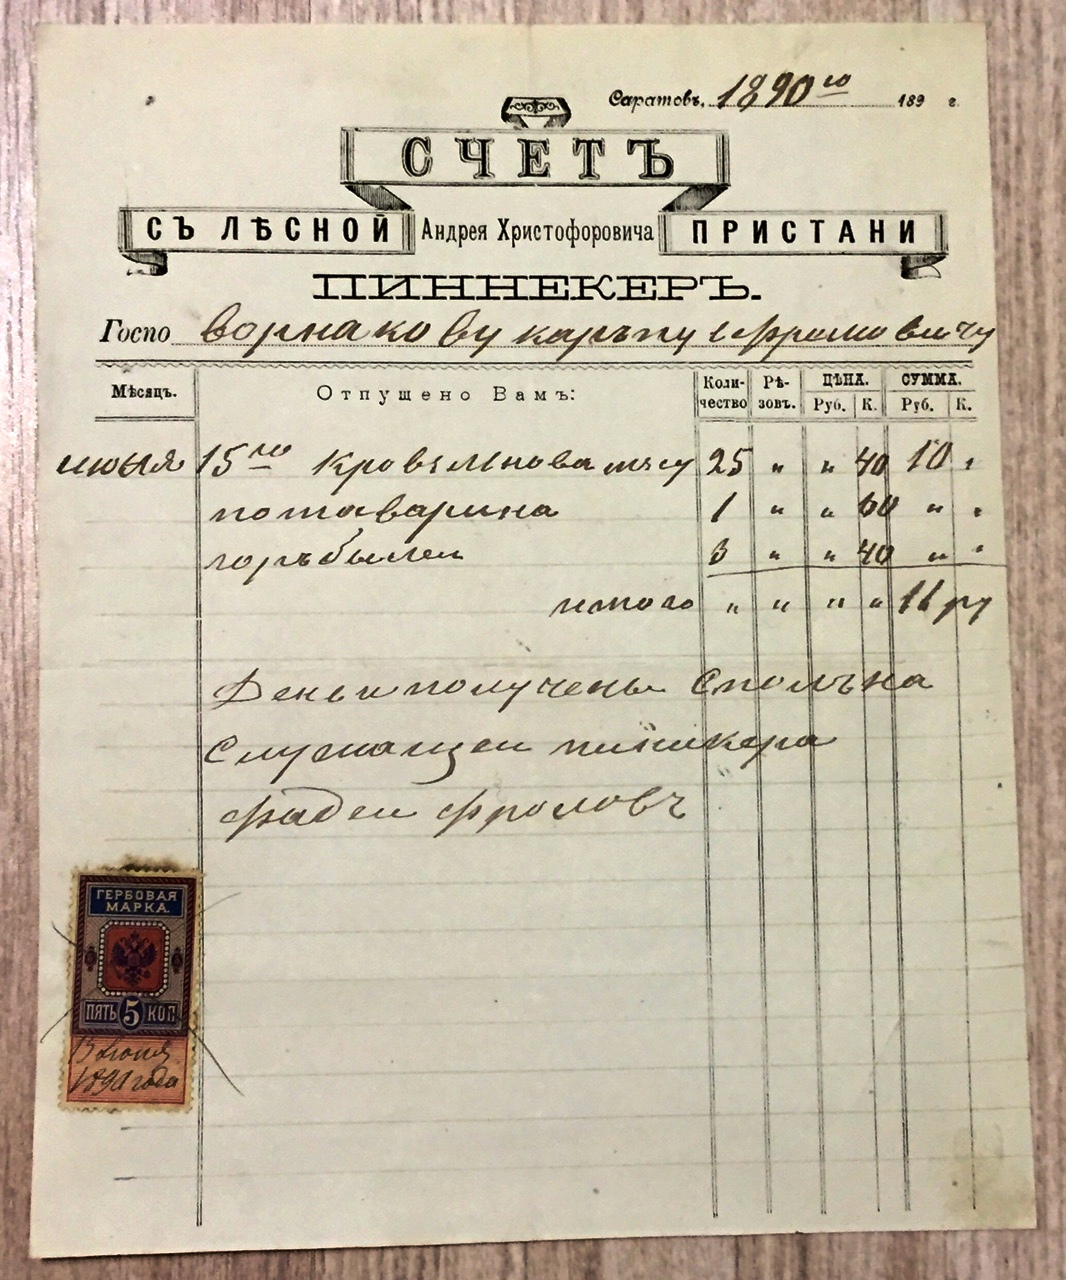 Саратовъ, 1890го 189 г.
СЧЕТЪ
СЪ ЛѢСНОЙ Андрея Христофоровича ПРИСТАНИ
ПИННЕКЕРЪ.
Госпо ворнакову карпу
Мѣсяцъ. Отпущено Вамъ: Коли-чество Рѣ-зовъ. ЦѢНА. Руб. К. СУММА. Руб. К.
июня 15го 25 " " 40 10 "
1 " " 60 " "
горъбылеи 3 " " 40 " "
итого " " " " 11 ру
Деньги получены Сполъна
Служащеи пиникера
фадеи фроловъ
ГЕРБОВАЯ
МАРКА.
ПЯТЬ 5 КОП
15 июня
1890 года